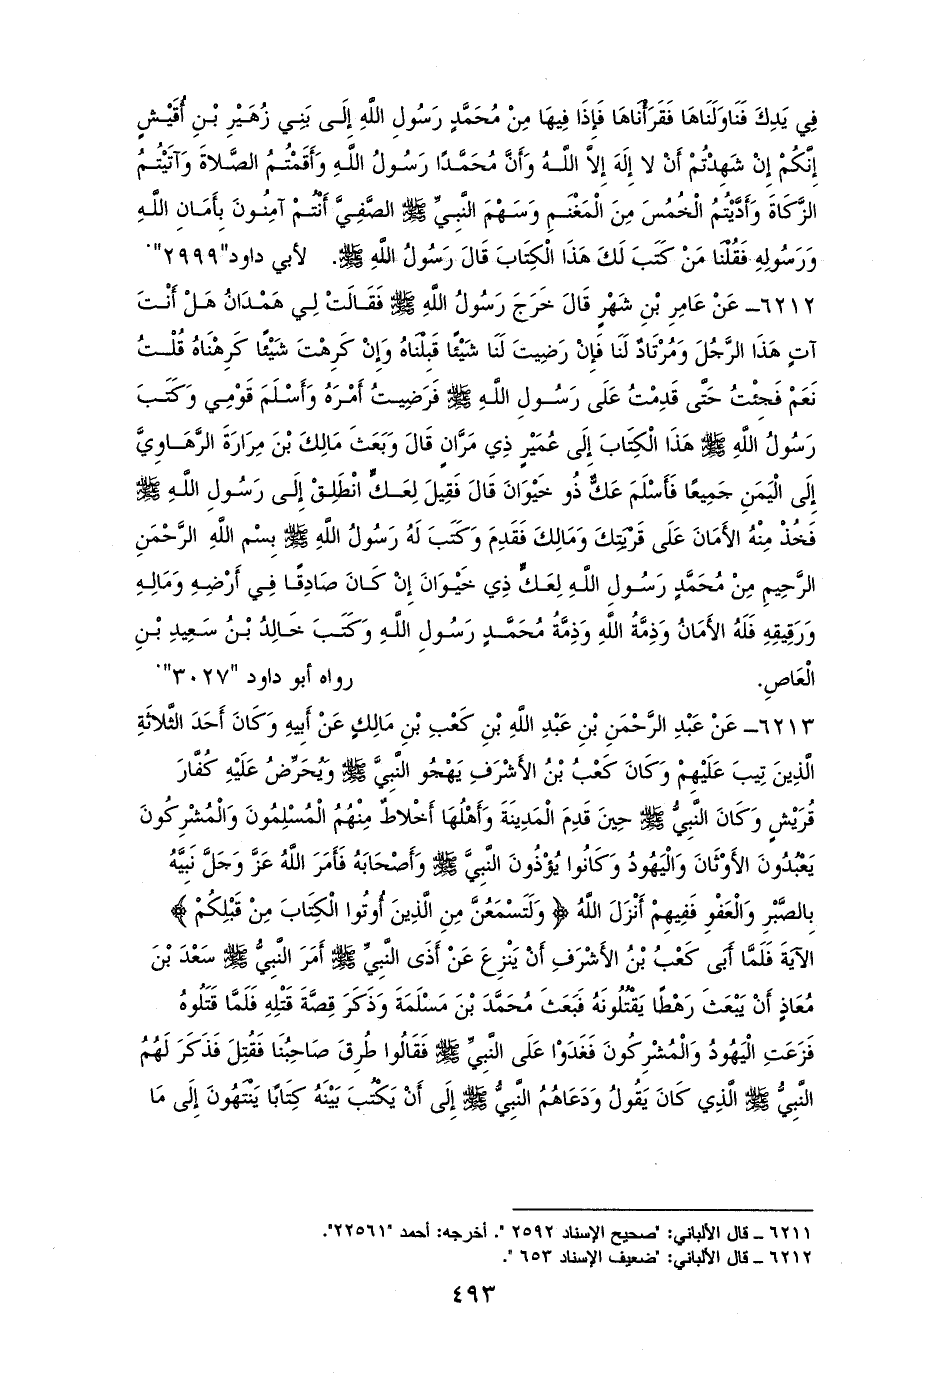 فِي يَدِكَ فَنَاوَلَنَاهَا فَقَرَأْنَاهَا فَإِذَا فِيهَا مِنْ مُحَمَّدٍ رَسُولِ اللَّهِ إِلَى بَنِي زُهَيْرِ بْنِ أُقَيْشٍ
إِنَّكُمْ إِنْ شَهِدْتُمْ أَنْ لا إِلَهَ إِلاَّ اللَّهُ وَأَنَّ مُحَمَّدًا رَسُولُ اللَّهِ وَأَقَمْتُمُ الصَّلاةَ وَآتَيْتُمُ
الزَّكَاةَ وَأَدَّيْتُمُ الْخُمُسَ مِنَ الْمَغْنَمِ وَسَهْمَ النَّبِيِّ ﷺ الصَّفِيَّ أَنْتُمْ آمِنُونَ بِأَمَانِ اللَّهِ
وَرَسُولِهِ فَقُلْنَا مَنْ كَتَبَ لَكَ هَذَا الْكِتَابَ قَالَ رَسُولُ اللَّهِ ﷺ. لأبي داود"٢٩٩٩".
٦٢١٢ـ عَنْ عَامِرِ بْنِ شَهْرٍ قَالَ خَرَجَ رَسُولُ اللَّهِ ﷺ فَقَالَتْ لِي هَمْدَانُ هَلْ أَنْتَ
آتٍ هَذَا الرَّجُلَ وَمُرْتَادٌ لَنَا فَإِنْ رَضِيتَ لَنَا شَيْئًا قَبِلْنَاهُ وَإِنْ كَرِهْتَ شَيْئًا كَرِهْنَاهُ قُلْتُ
نَعَمْ فَجِئْتُ حَتَّى قَدِمْتُ عَلَى رَسُولِ اللَّهِ ﷺ فَرَضِيتُ أَمْرَهُ وَأَسْلَمَ قَوْمِي وَكَتَبَ
رَسُولُ اللَّهِ ﷺ هَذَا الْكِتَابَ إِلَى عُمَيْرٍ ذِي مَرَّانٍ قَالَ وَبَعَثَ مَالِكَ بْنَ مِرَارَةَ الرَّهَاوِيَّ
إِلَى الْيَمَنِ جَمِيعًا فَأَسْلَمَ عَكٌّ ذُو خَيْوَانَ قَالَ فَقِيلَ لِعَكٍّ انْطَلِقْ إِلَى رَسُولِ اللَّهِ ﷺ
فَخُذْ مِنْهُ الأَمَانَ عَلَى قَرْيَتِكَ وَمَالِكَ فَقَدِمَ وَكَتَبَ لَهُ رَسُولُ اللَّهِ ﷺ بِسْمِ اللَّهِ الرَّحْمَنِ
الرَّحِيمِ مِنْ مُحَمَّدٍ رَسُولِ اللَّهِ لِعَكٍّ ذِي خَيْوَانَ إِنْ كَانَ صَادِقًا فِي أَرْضِهِ وَمَالِهِ
وَرَقِيقِهِ فَلَهُ الأَمَانُ وَذِمَّةُ اللَّهِ وَذِمَّةُ مُحَمَّدٍ رَسُولِ اللَّهِ وَكَتَبَ خَالِدُ بْنُ سَعِيدِ بْنِ
الْعَاصِ. رواه أبو داود "٣٠٢٧".
٦٢١٣ـ عَنْ عَبْدِ الرَّحْمَنِ بْنِ عَبْدِ اللَّهِ بْنِ كَعْبِ بْنِ مَالِكٍ عَنْ أَبِيهِ وَكَانَ أَحَدَ الثَّلاثَةِ
الَّذِينَ تِيبَ عَلَيْهِمْ وَكَانَ كَعْبُ بْنُ الأَشْرَفِ يَهْجُو النَّبِيَّ ﷺ وَيُحَرِّضُ عَلَيْهِ كُفَّارَ
قُرَيْشٍ وَكَانَ النَّبِيُّ ﷺ حِينَ قَدِمَ الْمَدِينَةَ وَأَهْلُهَا أَخْلاطٌ مِنْهُمُ الْمُسْلِمُونَ وَالْمُشْرِكُونَ
يَعْبُدُونَ الأَوْثَانَ وَالْيَهُودُ وَكَانُوا يُؤْذُونَ النَّبِيَّ ﷺ وَأَصْحَابَهُ فَأَمَرَ اللَّهُ عَزَّ وَجَلَّ نَبِيَّهُ
بِالصَّبْرِ وَالْعَفْوِ فَفِيهِمْ أَنْزَلَ اللَّهُ ﴿ وَلَتَسْمَعُنَّ مِنِ الَّذِينَ أُوتُوا الْكِتَابَ مِنْ قَبْلِكُمْ ﴾
الآيَةَ فَلَمَّا أَبَى كَعْبُ بْنُ الأَشْرَفِ أَنْ يَنْزِعَ عَنْ أَذَى النَّبِيِّ ﷺ أَمَرَ النَّبِيُّ ﷺ سَعْدَ بْنَ
مُعَاذٍ أَنْ يَبْعَثَ رَهْطًا يَقْتُلُونَهُ فَبَعَثَ مُحَمَّدَ بْنَ مَسْلَمَةَ وَذَكَرَ قِصَّةَ قَتْلِهِ فَلَمَّا قَتَلُوهُ
فَزَعَتِ الْيَهُودُ وَالْمُشْرِكُونَ فَغَدَوْا عَلَى النَّبِيِّ ﷺ فَقَالُوا طُرِقَ صَاحِبُنَا فَقُتِلَ فَذَكَرَ لَهُمُ
النَّبِيُّ ﷺ الَّذِي كَانَ يَقُولُ وَدَعَاهُمُ النَّبِيُّ ﷺ إِلَى أَنْ يَكْتُبَ بَيْنَهُ كِتَابًا يَنْتَهُونَ إِلَى مَا
٦٢١١ ـ قال الألباني: "صحيح الإسناد ٢٥٩٢ ". أخرجه: أحمد "٢٢٥٦١".
٦٢١٢ ـ قال الألباني: "ضعيف الإسناد ٦٥٣ ".
٤٩٣